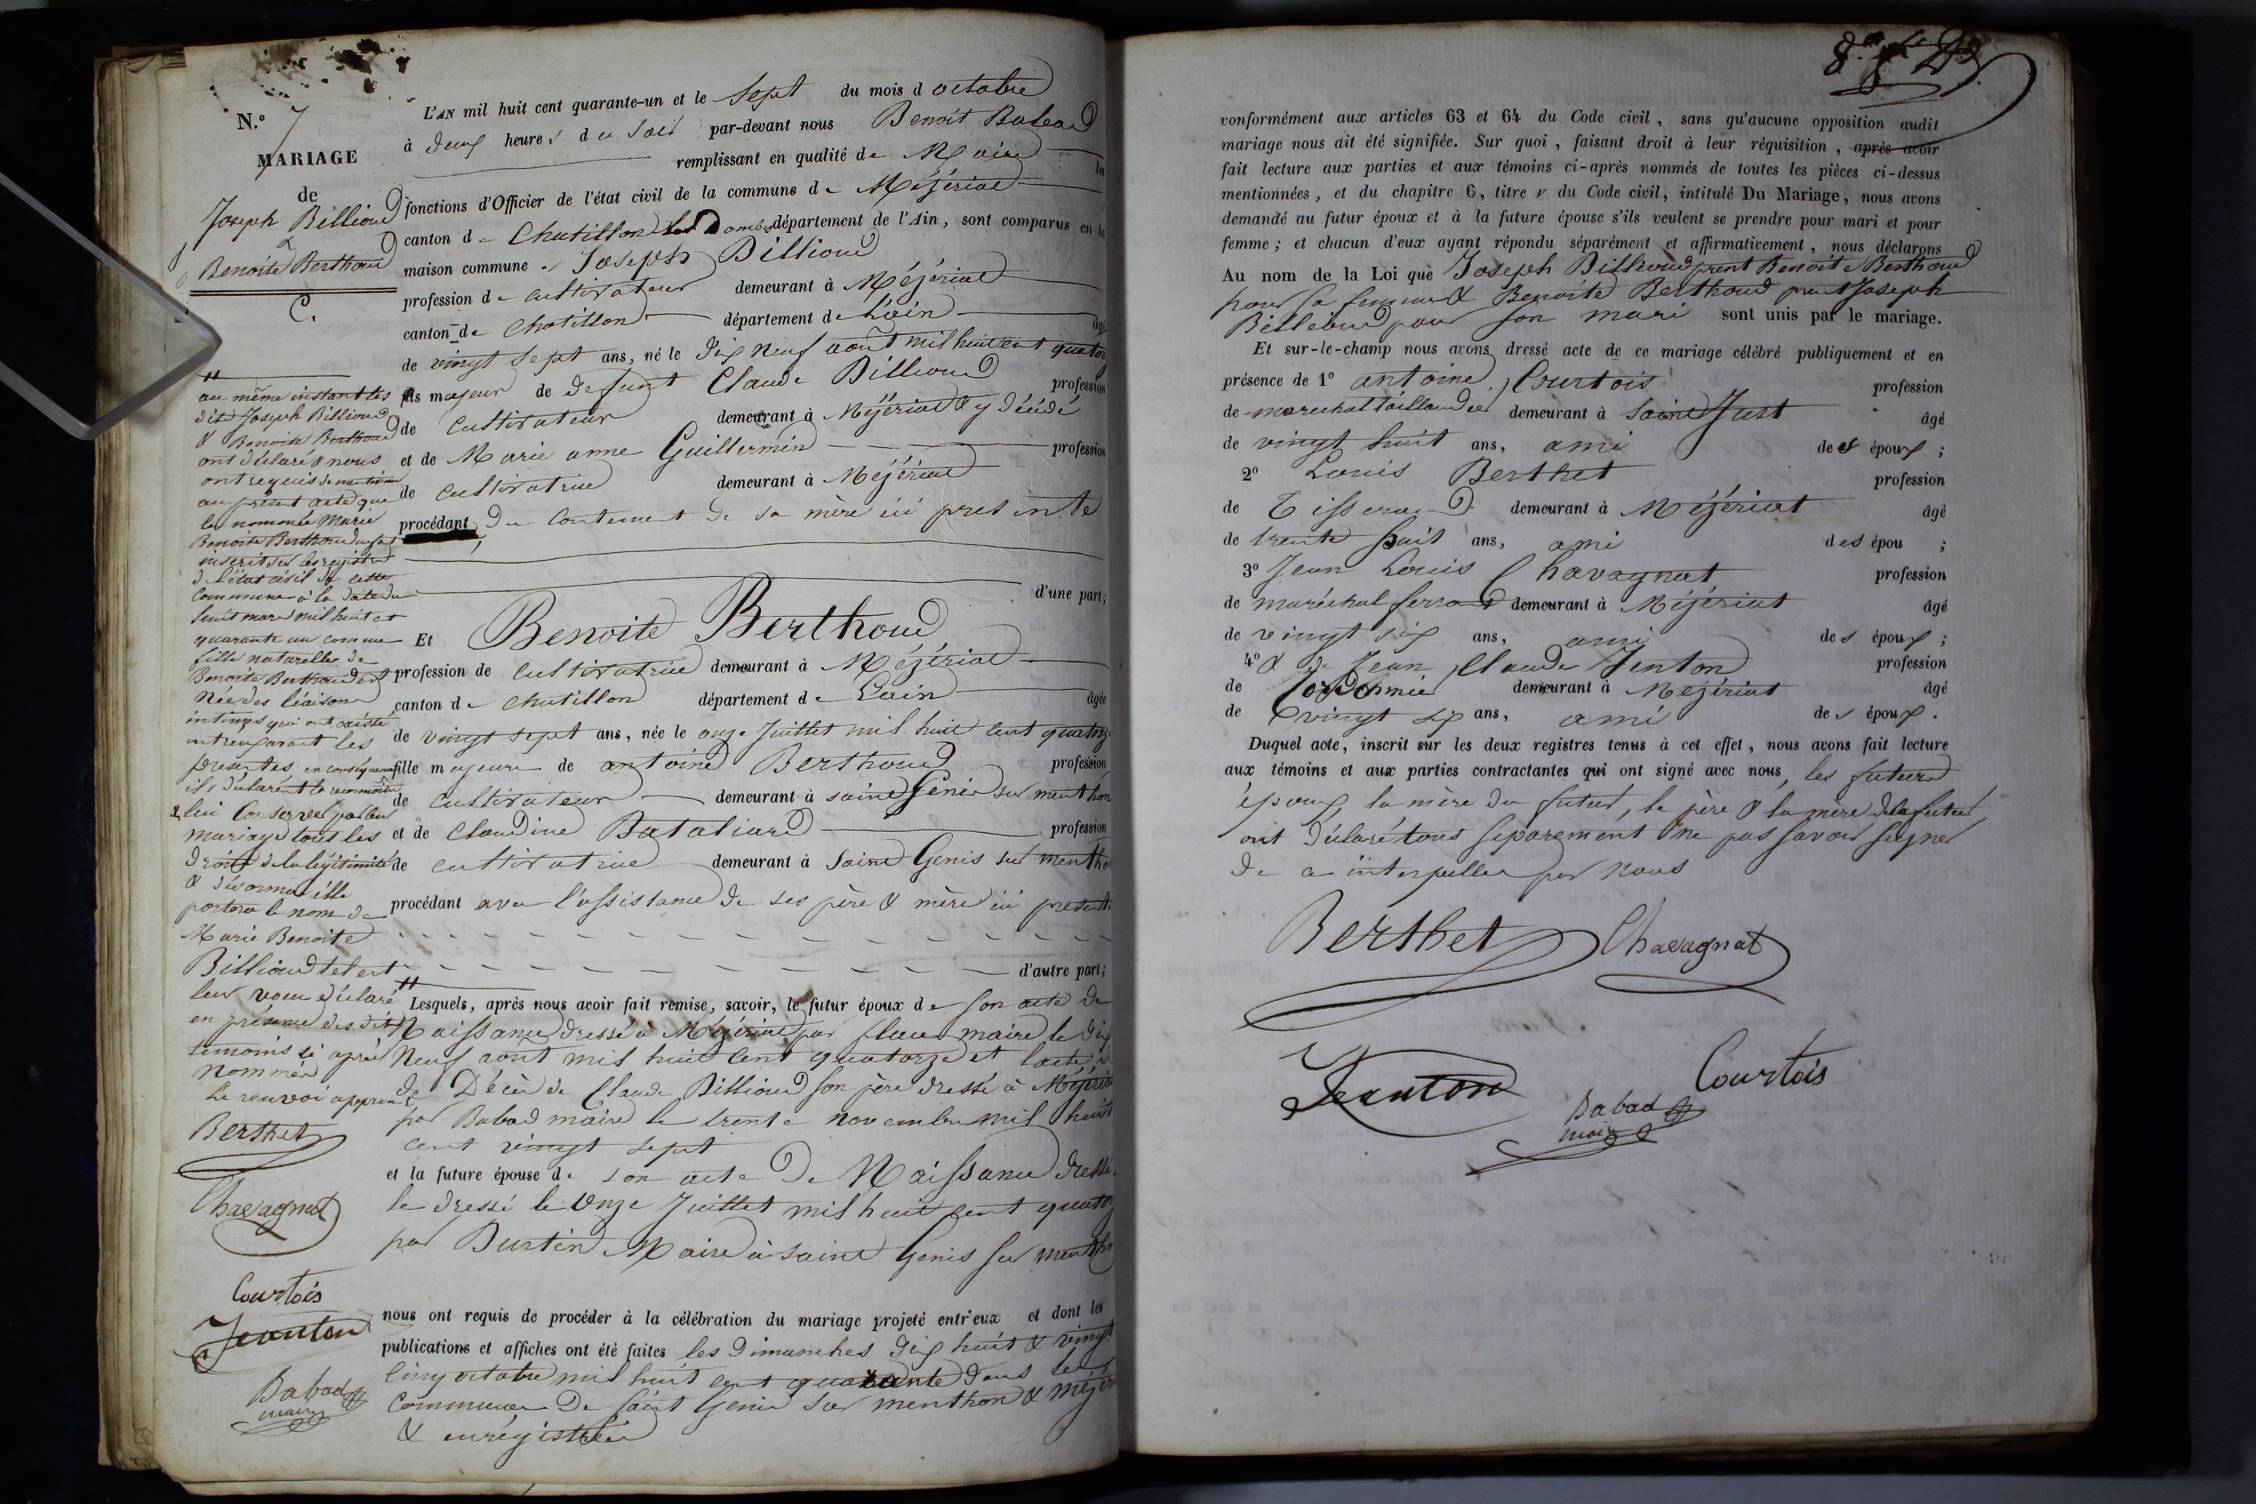 N.o 7
MARIAGE
de
Joseph Billioud
&
Benoite Berthoud
C.
L'AN mil huit cent quarante-un et le sept du mois d octobre
à deux heures du soir par-devant nous Benoit Babad
remplissant en qualité de Maire les
fonctions d'Officier de l'état civil de la commune de Mézériat
canton de Chatillon les Dombes département de l'Ain, sont comparus en la
maison commune Joseph Billioud
profession de cultivateur demeurant à Mézériat
canton de Chatillon département de L'ain âgé
de vingt sept ans, né le dix neuf août mil huit cent quatorze
fils majeur de defunt Claude Billioud profession
de cultivateur demeurant à Mézériat & y décédé
et de Marie anne Guillermin profession
de cultivatrice demeurant à Mézériat
procédant du contement de sa mère ici presente
d'une part;
Et Benoite Berthoud
profession de cultivatrice demeurant à Mézériat
canton de Chatillon département de Lain âgée
de vingt sept ans, née le onze Juillet mil huit cent quatorze
fille majeure de antoine Berthoud profession
de cultivateur demeurant à saint Genis sur menthon
et de Claudine Bataliard profession
de cultivatrice demeurant à Saint Genis sur mentho
procédant avec l'assistance de ses père & mère ici presents
d'autre part;
Lesquels, après nous avoir fait remise, savoir, le futur époux de son acte de
Naissance dressé à Mézériat par maire le dix
Neuf aout mil huit cent quatorze et l'acte
de Décès de Claude Billioud son père dressé à Mézériat
par Babad maire le trente novembre mil huit
cent vingt sept
et la future épouse de son acte de Naissance dressé
le dressé le Onze Juillet mil huit cent quatorz
par Burtin Maire à Saint Genis sur mentho
nous ont requis de procéder à la célébration du mariage projeté entr'eux et dont les
publications et affiches ont été faites les Dimanches dix huit & vingt
cinq octobre mil huit cent quarante dans les
Communes de saint Genis sur menthon & Mézér
& enrégistrées
au même instant les
dits Joseph Billioud
& Benoite Berthoud
ont déclaré & nous
ont requis de mention
au présent acte que
la nommée Marie
Benoite Berthoud
inscrit sur les registres
de l'état civil de cette
Commune à la date du
huit mars mil huit cent
quarante un comme
fille naturelle de
Benoite Berthoud est
Née des liaisons
intimes qui ont existé
entreux avant les
presentes en conséquence
ils déclarent la reconnoitre
& lui conserver par leur
mariage tous les
droits de la légitimité
& désormais elle
portera le nom de
Marie Benoite
Billioud tel est
leur voeu déclaré
en présence des dits
temoins ci après
nommés
Le renvoi approuvé
Berthet
Chavagnat
Courtois
Jeanton
Babad
maire
conformément aux articles 63 et 64 du Code civil, sans qu'aucune opposition audit
mariage nous ait été signifiée. Sur quoi, faisant droit à leur réquisition, après avoir
fait lecture aux parties et aux témoins ci-après nommés de toutes les pièces ci-dessus
mentionnées, et du chapitre 6, titre V du Code civil, intitulé Du Mariage, nous avons
demandé au futur époux et à la future épouse s'ils veulent se prendre pour mari et pour
femme; et chacun d'eux ayant répondu séparément et affirmativement, nous déclarons
Au nom de la Loi que Joseph Billioud prent Benoite Berthoud
pour sa femme & Benoite Berthoud prent Joseph
Billioud pour son mari sont unis par le mariage.
Et sur-le-champ nous avons dressé acte de ce mariage célébré publiquement et en
présence de 1o antoine Courtois profession
de marechal taillandier demeurant à Saint Just âgé
de vingt huit ans, ami des époux;
2o Louis Berthet profession
de Tisserand demeurant à Mézériat âgé
de trente huit ans, ami des épou ;
3o Jean Louis Chavagnat profession
de maréchal ferrant demeurant à Mézériat âgé
de vingt six ans, ami des époux;
4o & de Jean Claude Jenton profession
de Cordonnier demeurant à Mezériat âgé
de vingt six ans, ami des époux.
Duquel acte, inscrit sur les deux registres tenus à cet effet, nous avons fait lecture
aux témoins et aux parties contractantes qui ont signé avec nous, les futurs
époux, la mère du futur, le père & la mère de la future
ont déclaré tous séparement ne pas savoir signer
de ce interpellés par nous
Berthet Chavagnat
Jeanton Courtois
Babad
maire